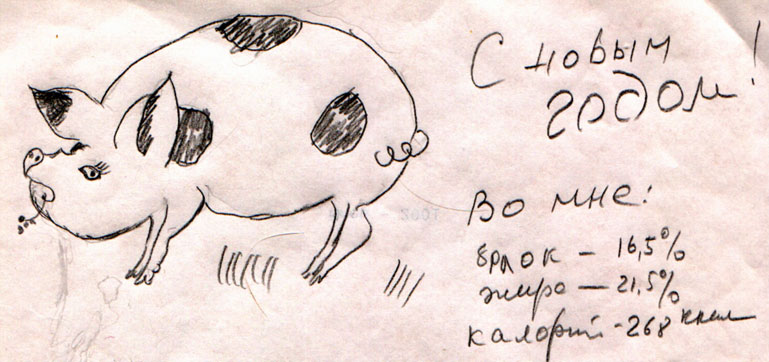 С новым
годом!
Во мне:
белок - 16,5%
жира - 21,5%
калорий - 268 ккал